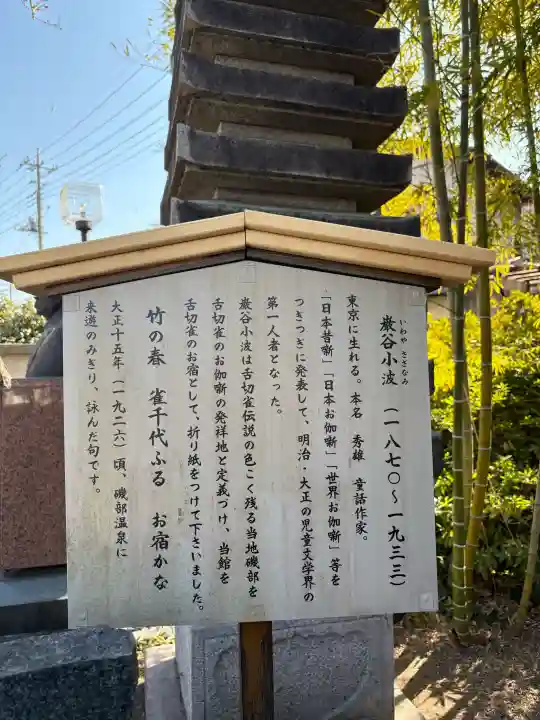 巌谷小波(一八七〇～一九三三)
いわや さざなみ
東京に生れる。本名 秀雄 童話作家。
「日本昔噺」「日本お伽噺」「世界お伽噺」等を
つぎつぎに発表して、明治・大正の児童文学界の
第一人者となった。
巌谷小波は舌切雀伝説の色こく残る当地磯部を
舌切雀のお伽噺の発祥地と定義づけ、当館を
舌切雀のお宿として、折り紙をつけて下さいました。
竹の春 雀千代ふる お宿かな
大正十五年(一九二六)頃、磯部温泉に
来遊のみぎり、詠んだ句です。